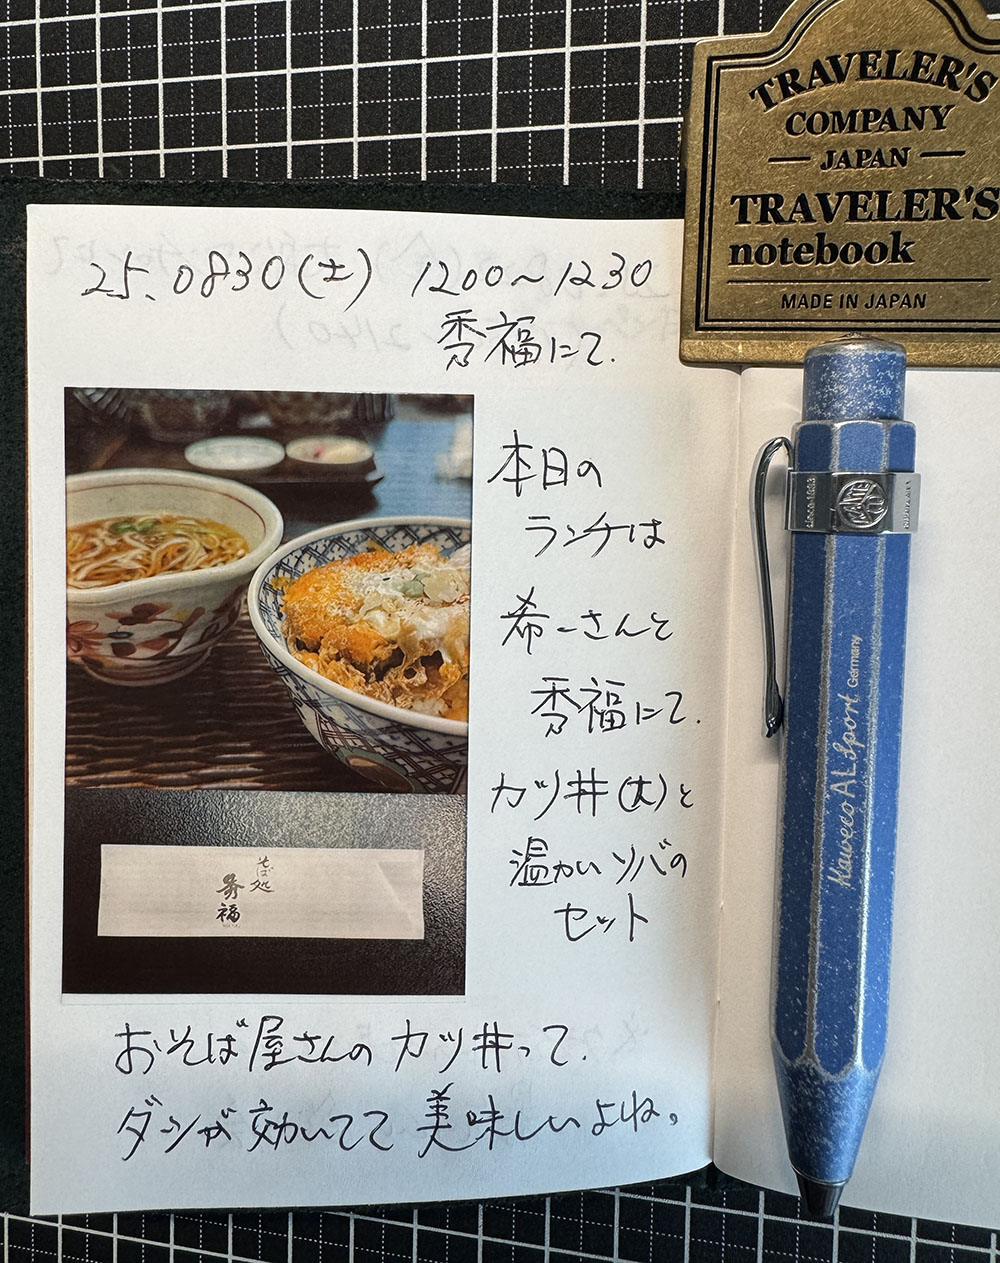 TRAVELER'S
COMPANY
JAPAN
TRAVELER'S
notebook
MADE IN JAPAN
25.0830(土) 1200〜1230
秀福にて.
本日の
ランチは
希一さんと
秀福にて.
カツ丼(大)と
温かいソバの
セット
そば処
秀福
おそば屋さんのカツ丼って.
ダシが効いてて美味しいよね。
Kaweco AL Sport Germany